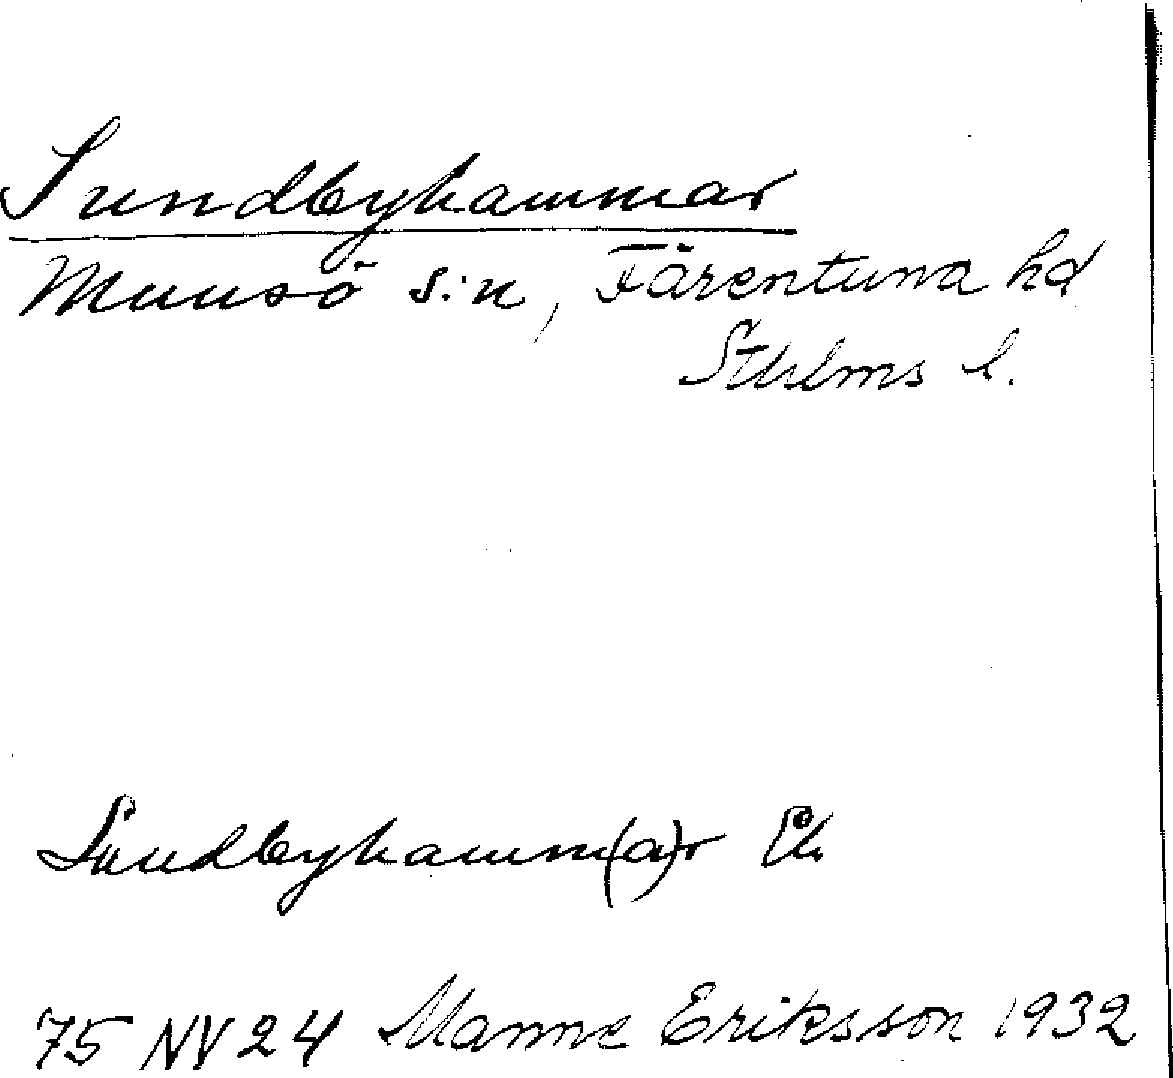 Sundbyhammar
Munsö s:n, Färentuna hd
Sthlms l.
Sundbyhamm(a)r
75 NV 24 Manne Eriksson 1932